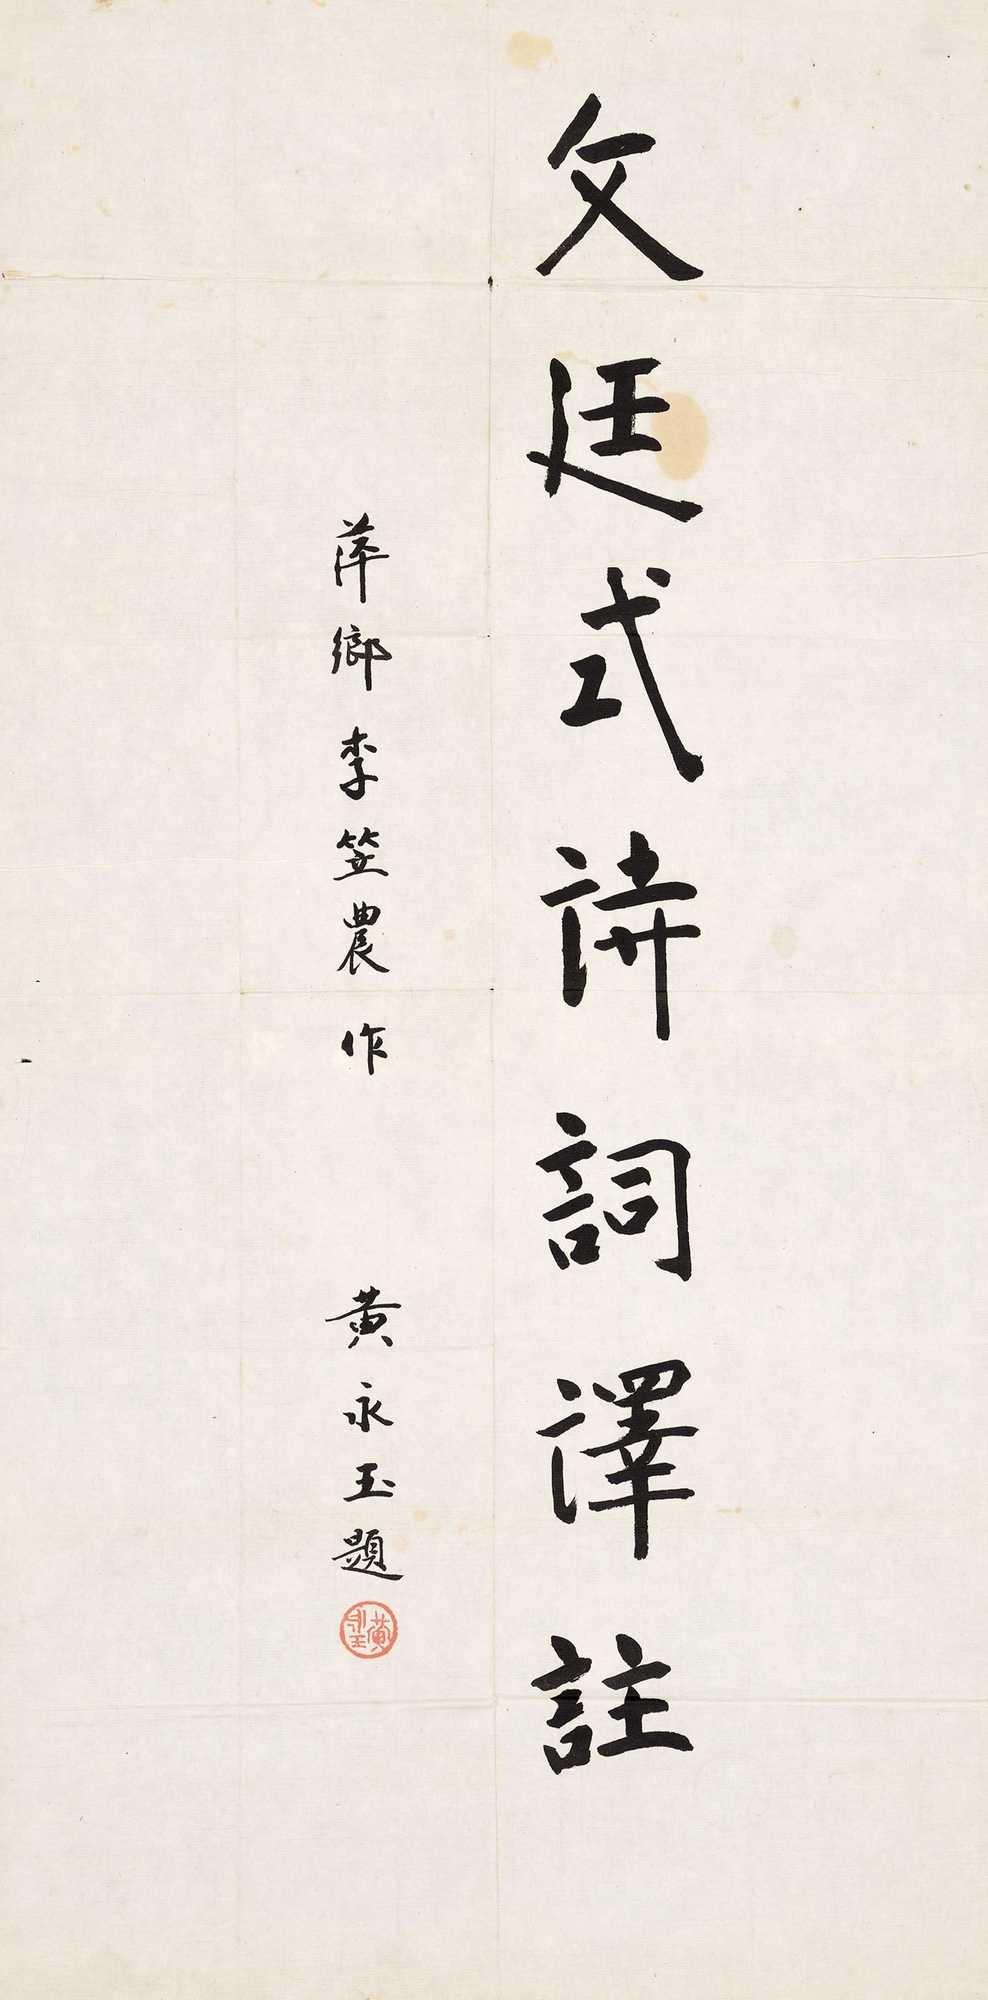 文廷式詩詞譯註
萍鄉李笠農作
黄永玉題
黄永玉